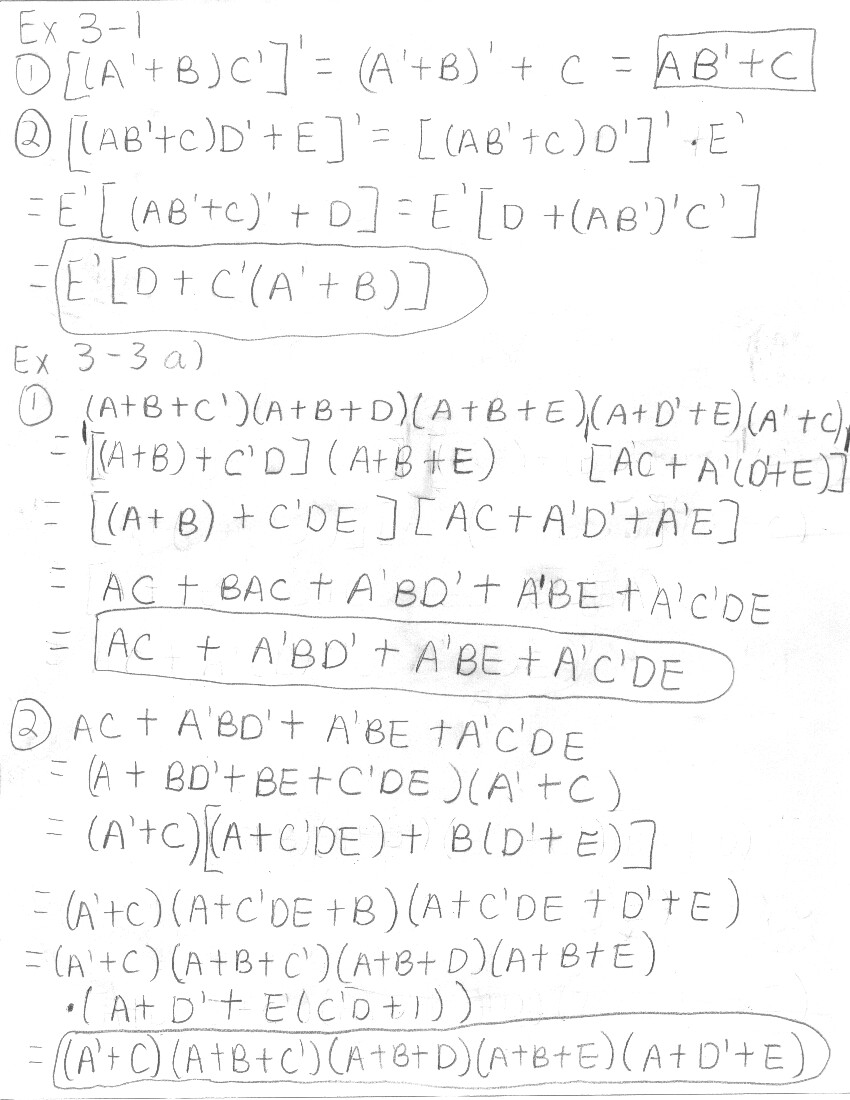 Ex 3-1
① [(A'+B)C']' = (A'+B)' + C = AB'+C
② [(AB'+C)D'+E]' = [(AB'+C)D']' · E'
= E'[(AB'+C)' + D] = E'[D +(AB')'C']
= E'[D + C'(A'+B)]
Ex 3-3 a)
① (A+B+C')(A+B+D)(A+B+E)(A+D'+E)(A'+C)
= [(A+B)+C'D](A+B+E) [AC+A'(D'+E)]
= [(A+B) + C'DE][AC+A'D'+A'E]
= AC + BAC + A'BD' + A'BE + A'C'DE
= AC + A'BD' + A'BE + A'C'DE
② AC + A'BD' + A'BE + A'C'DE
= (A + BD'+BE+C'DE)(A'+C)
= (A'+C)[(A+C'DE) + B(D'+E)]
= (A'+C)(A+C'DE+B)(A+C'DE + D'+E)
= (A'+C)(A+B+C')(A+B+D)(A+B+E)
·(A+D'+E(C'D+1))
= (A'+C)(A+B+C')(A+B+D)(A+B+E)(A+D'+E)